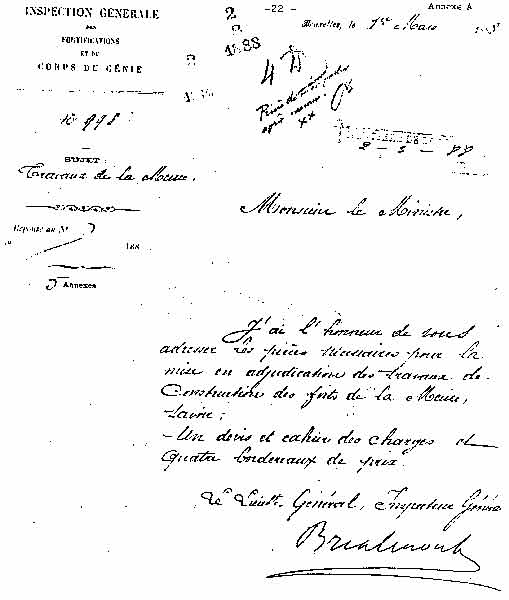 INSPECTION GÉNÉRALE
DES
FORTIFICATIONS
ET DU
CORPS DU GÉNIE
-22-
Annexe A
Bruxelles, le 1er Mars
2
2
1888
No 998
SUJET:
Travaux de la Meuse.
Réponse au No
188
5 Annexes
2 - 3 - 88
Monsieur le Ministre,
J'ai l'honneur de vous
adresser les pièces nécessaires pour la
mise en adjudication des travaux de
Construction des forts de la Meuse,
savoir;
- Un devis et cahier des charges et
Quatre bordereaux de prix
Le Lieutt. Général, Inspecteur Général
Brialmont